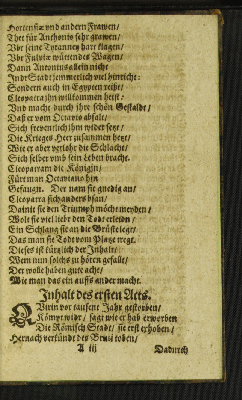 Hortensiæ vnd andern Frawen/
Thet für Anthonio sehr grawen/
Vor seine Tyranney hart klagen/
Vor Fulviæ wütendes Wagen/
Dann Antonius allein nicht
In der Stadt jemmerlich viel hinricht:
Sondern auch in Egypten reiset/
Cleopatra jhn willkommen heist/
Vnd macht durch jhre schön Gestaldt/
Daß er vom Octavio abfalt/
Sich freventlich jhm wider setzt/
Die Krieges Heer zusammen hetzt/
Wie er aber verlohr die Schlacht/
Sich selber vmb sein Leben bracht.
Cleopatram die Königin/
Führt man Octaviano hin
Gefangn. Der nam sie gnedig an/
Cleopatra sich anders bsan/
Damit sie den Triumph möcht meyden/
Wolt sie viel liebr den Tod erleiden/
Ein Schlang sie an die Brüste legt/
Das man sie Todt vom Platze tregt.
Dieses ist kürzlich der Inhalt/
Wem nun solchs zu hören gefalt/
Der wolle haben gute acht/
Wie man das ein auffs ander macht.
Inhalt des ersten Acts.
Qvirin vor tausent Jahr gestorben/
Kömpt wider/ sagt wie er hab erworben
Die Römisch Stadt/ sie erst erhoben/
Hernach verkündt des Bruti toben/
A iij Dadurch